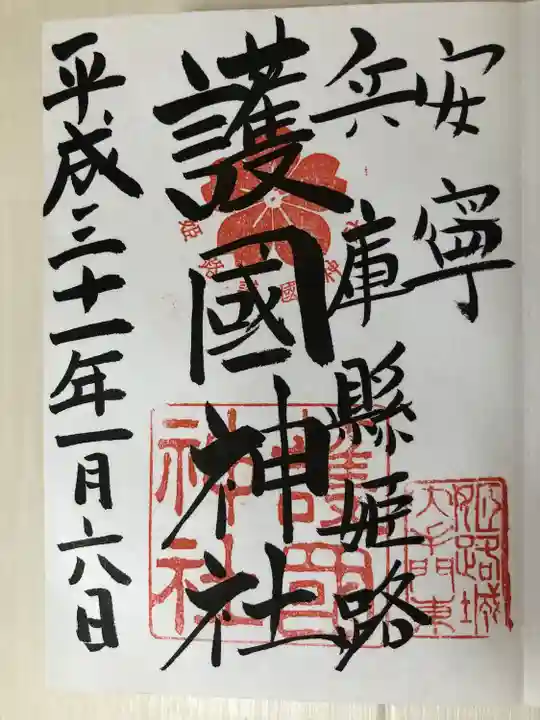 安寧
兵庫縣姫路
護國神社
平成三十一年一月六日
護國
神社
姫路城
大手門東